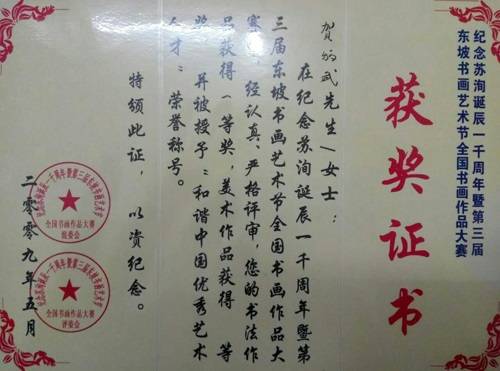 纪念苏洵诞辰一千周年暨第三届
东坡书画艺术节全国书画作品大赛
获奖证书
贺炳武先生/女士：
在纪念苏洵诞辰一千周年暨第
三届东坡书画艺术节全国书画作品大
赛中，经认真、严格评审，您的书法作
品获得一等奖，美术作品获得 等
奖，并被授予“和谐中国优秀艺术
人才”荣誉称号。
特颁此证，以资纪念。
二〇〇九年五月
全国书画作品大赛
组委会
全国书画作品大赛
评委会